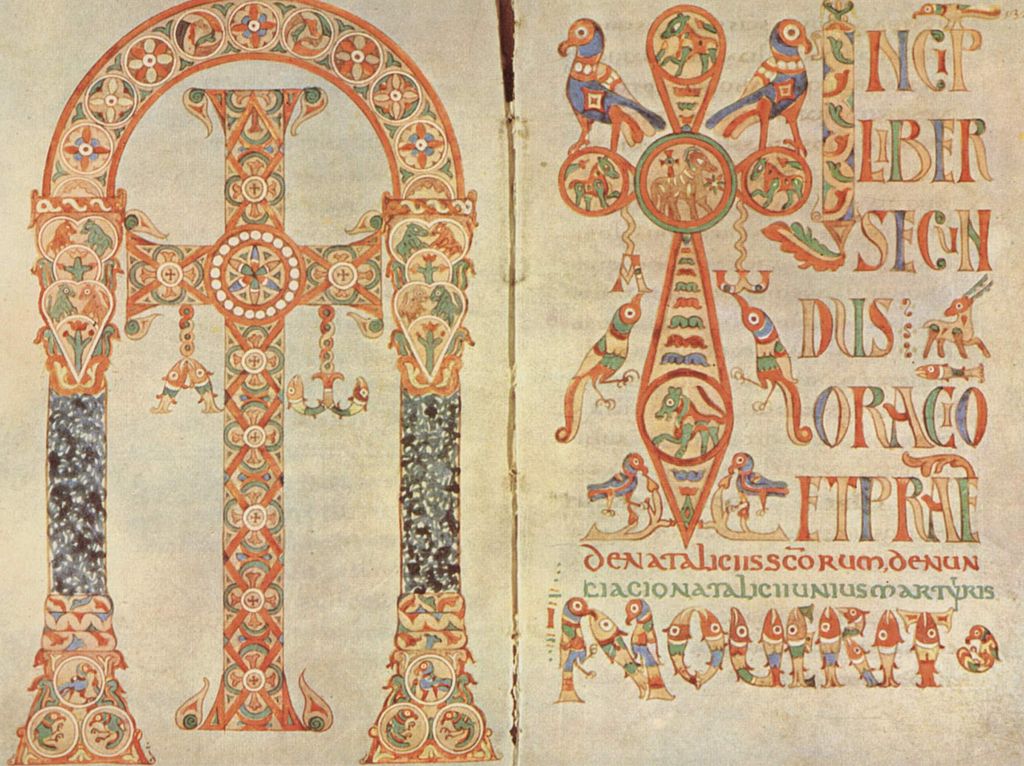 A ω
A ω
INCIP
LIBER
SECUN
DUS
ORACIO
ET PRAE
DE NATALICIIS SC̅ORUM, DENUN
CIACIO NATALICII UNIUS MARTYRIS
NOUERIT